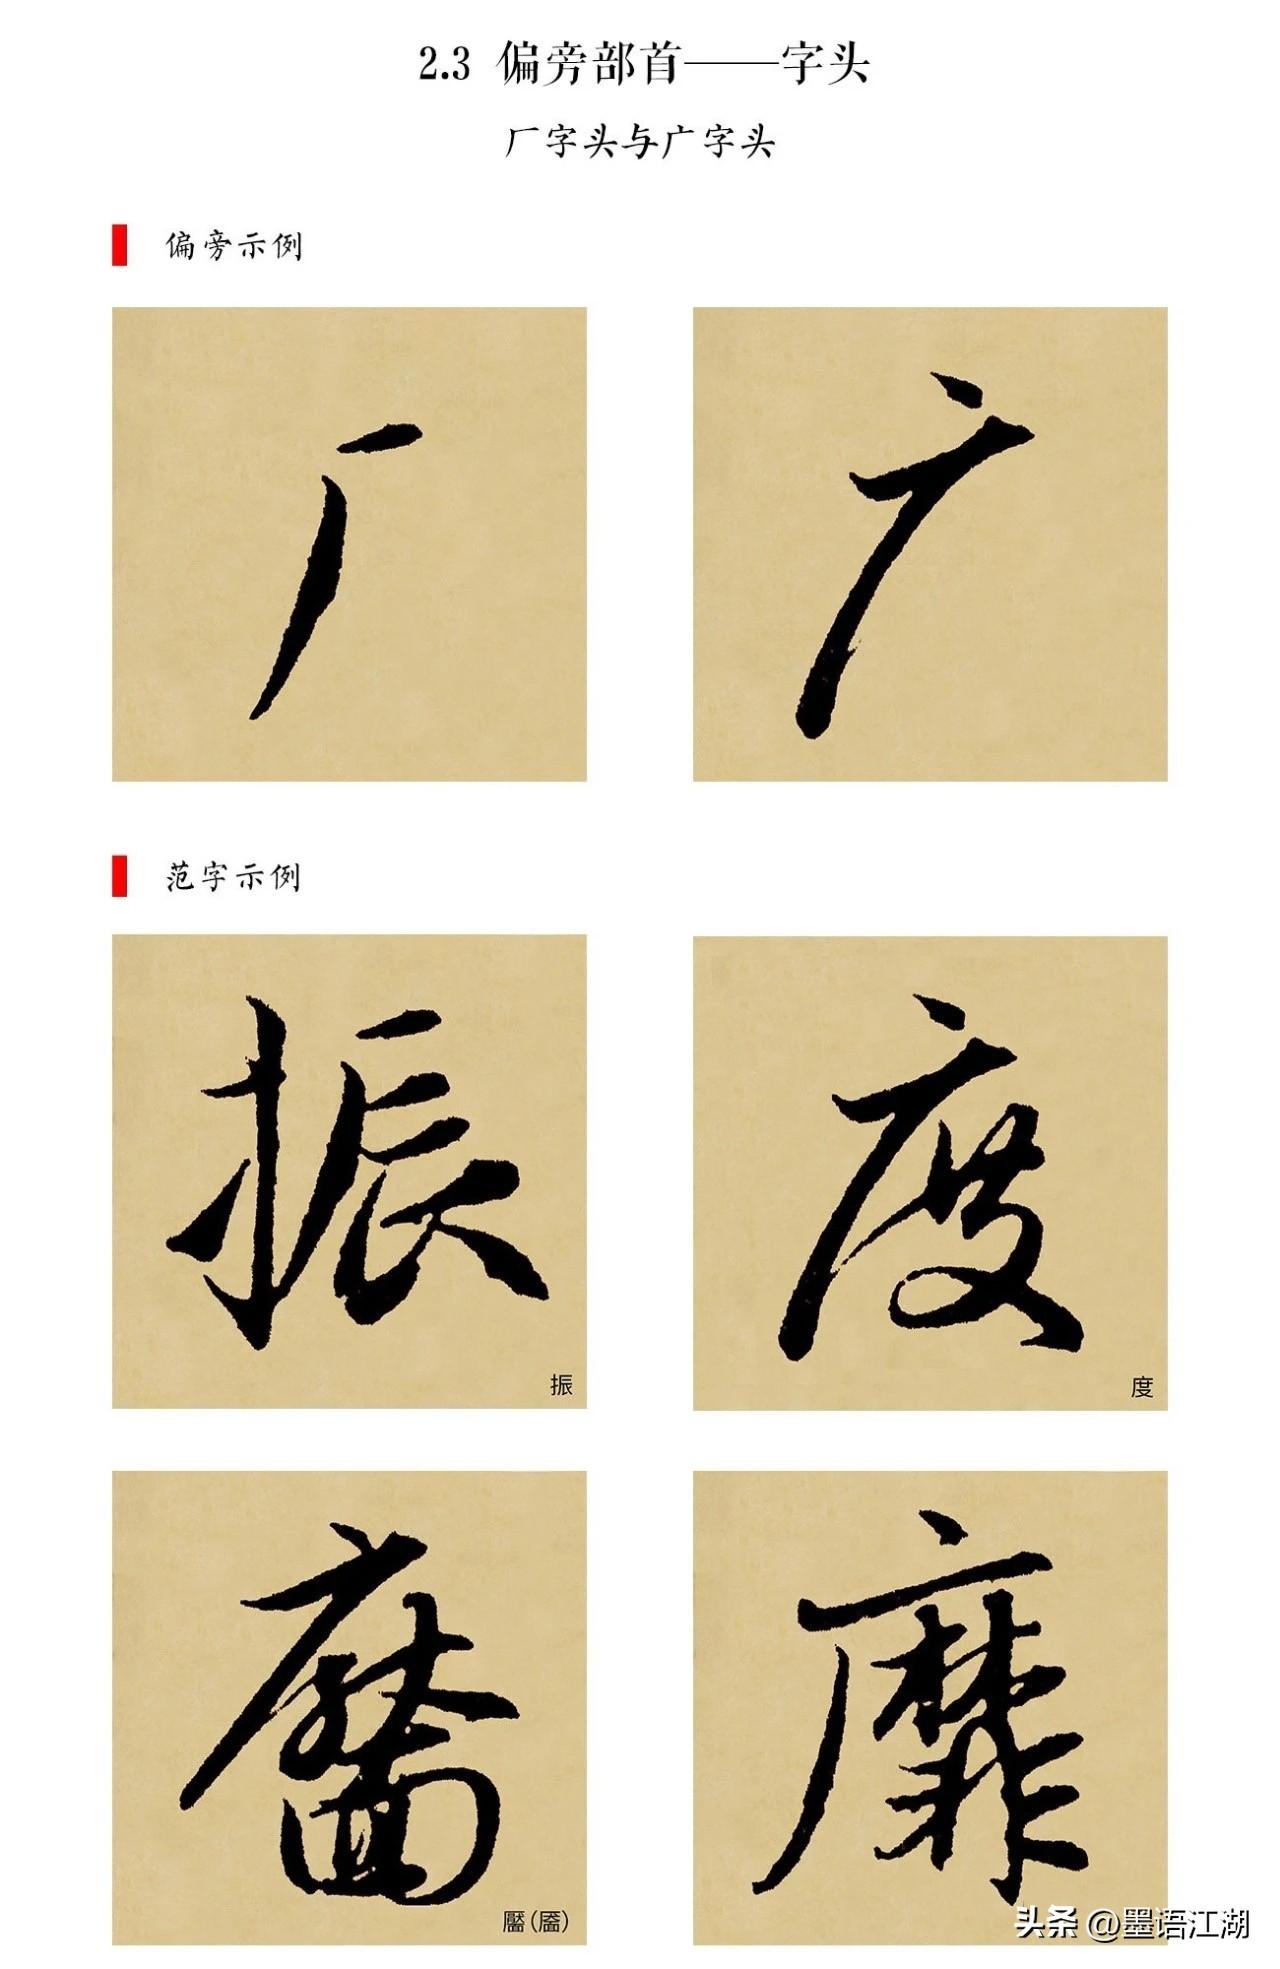 2.3 偏旁部首——字头
厂字头与广字头
偏旁示例
厂 广
范字示例
振 度
振 度
靥 靡
靨(靥)
头条 @墨语江湖